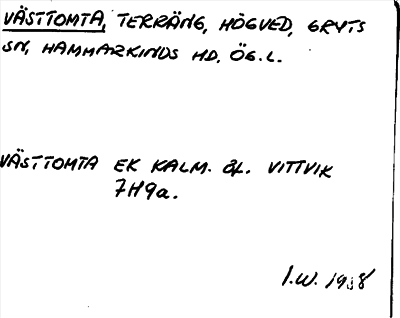 VÄSTTOMTA, TERRÄNG, HÖGVED, GRYTS
SN, HAMMARKINDS HD, ÖG.L.
VÄSTTOMTA EK KALM. BL. VITTVIK
7H9a.
I.W.